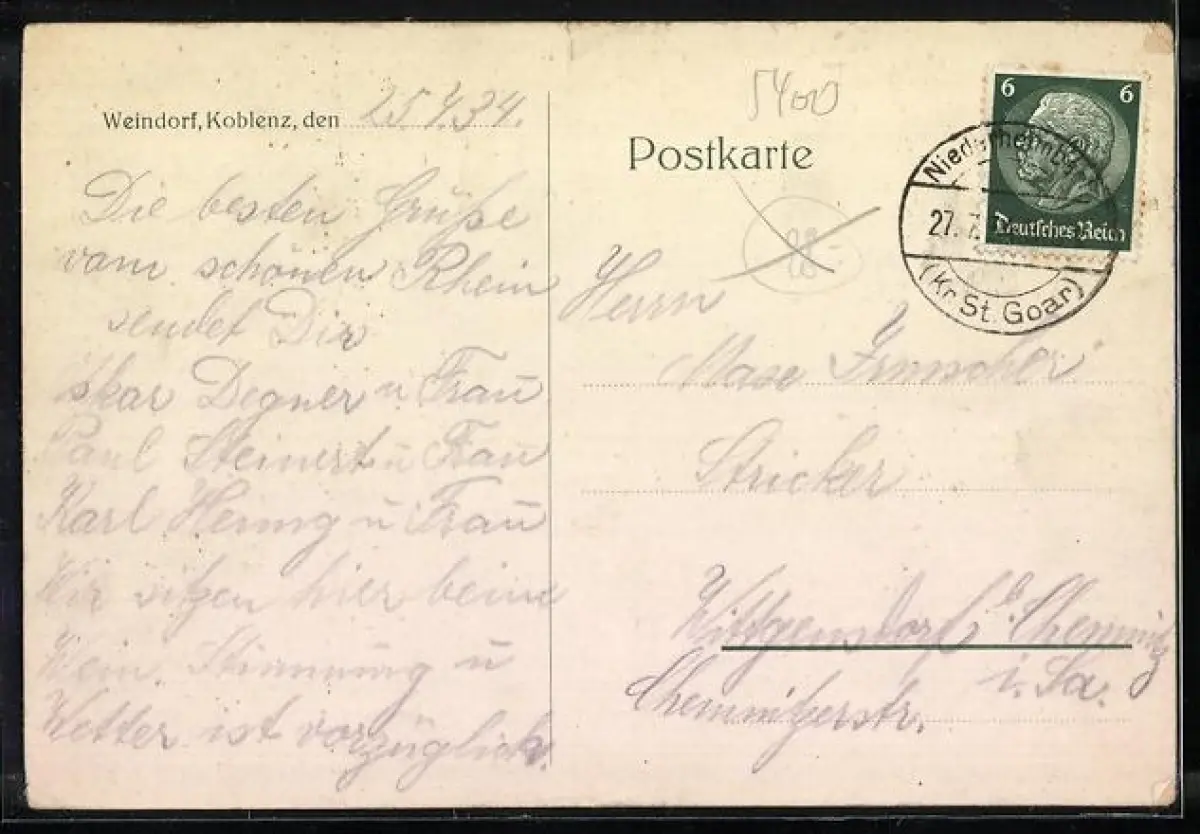 Weindorf, Koblenz, den 25.7.34.
Die besten Grüße
vom schönen Rhein
sendet Dir
skar Degner u Frau
Paul Steinert u Frau
Karl Hennig u Frau
Wir sitzen hier beim
Wein. Stimmung u
Wetter ist vorzüglich.
5400
Postkarte
28.-
6 6
Deutsches Reich
27. 7.
(Kr. St. Goar)
Herrn
Irmscher
Stricker
Wittgensdorf b. Chemnitz
i. Sa.
Chemnitzerstr.